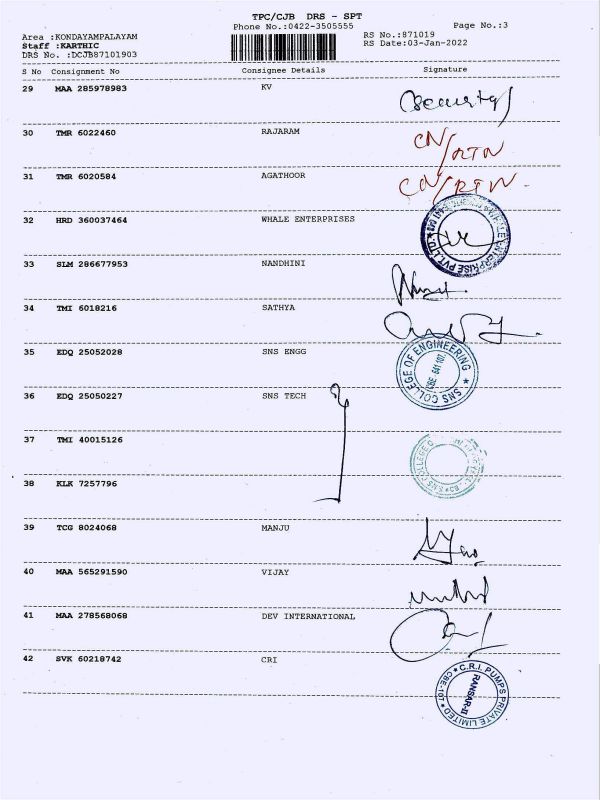 TPC/CJB DRS - SPT
Phone No.:0422-3505555
Page No.:3
Area :KONDAYAMPALAYAM
Staff :KARTHIC
DRS No. :DCJB87101903
RS No.:871019
RS Date:03-Jan-2022
S No Consignment No Consignee Details Signature
29 MAA 285978983 KV
Security
30 TMR 6022460 RAJARAM
CN/RTN
31 TMR 6020584 AGATHOOR
CN/RTN
32 HRD 360037464 WHALE ENTERPRISES
WHALE ENTERPRISE PVT. LTD.
33 SLM 286677953 NANDHINI
34 TMI 6018216 SATHYA
35 EDQ 25052028 SNS ENGG
SNS COLLEGE OF ENGINEERING
CBE-641 107.
36 EDQ 25050227 SNS TECH
37 TMI 40015126
SNS COLLEGE
38 KLK 7257796
39 TCG 8024068 MANJU
40 MAA 565291590 VIJAY
41 MAA 278568068 DEV INTERNATIONAL
42 SVK 60218742 CRI
C.R.I. PUMPS PRIVATE LIMITED
CBE-107
RANSAR-II